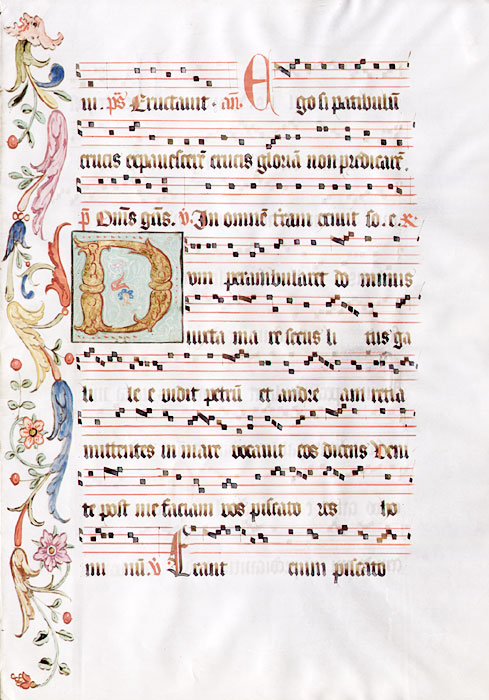 iii. ps Eructauit. an. Ego si patibulū
crucis expauescerē crucis gloriā non predicarē.
p̄ Om̄s gn̄s. v̄ In omnē trām exiuit so. e. R
Dum perambularet do minus
iuxta ma re secus li tus ga
li le e vidit petrū et andre am retia
mittentes in mare vocauit eos dicens Veni
te post me faciam vos piscato res ho
mi nū. v̄ Erant enim piscato